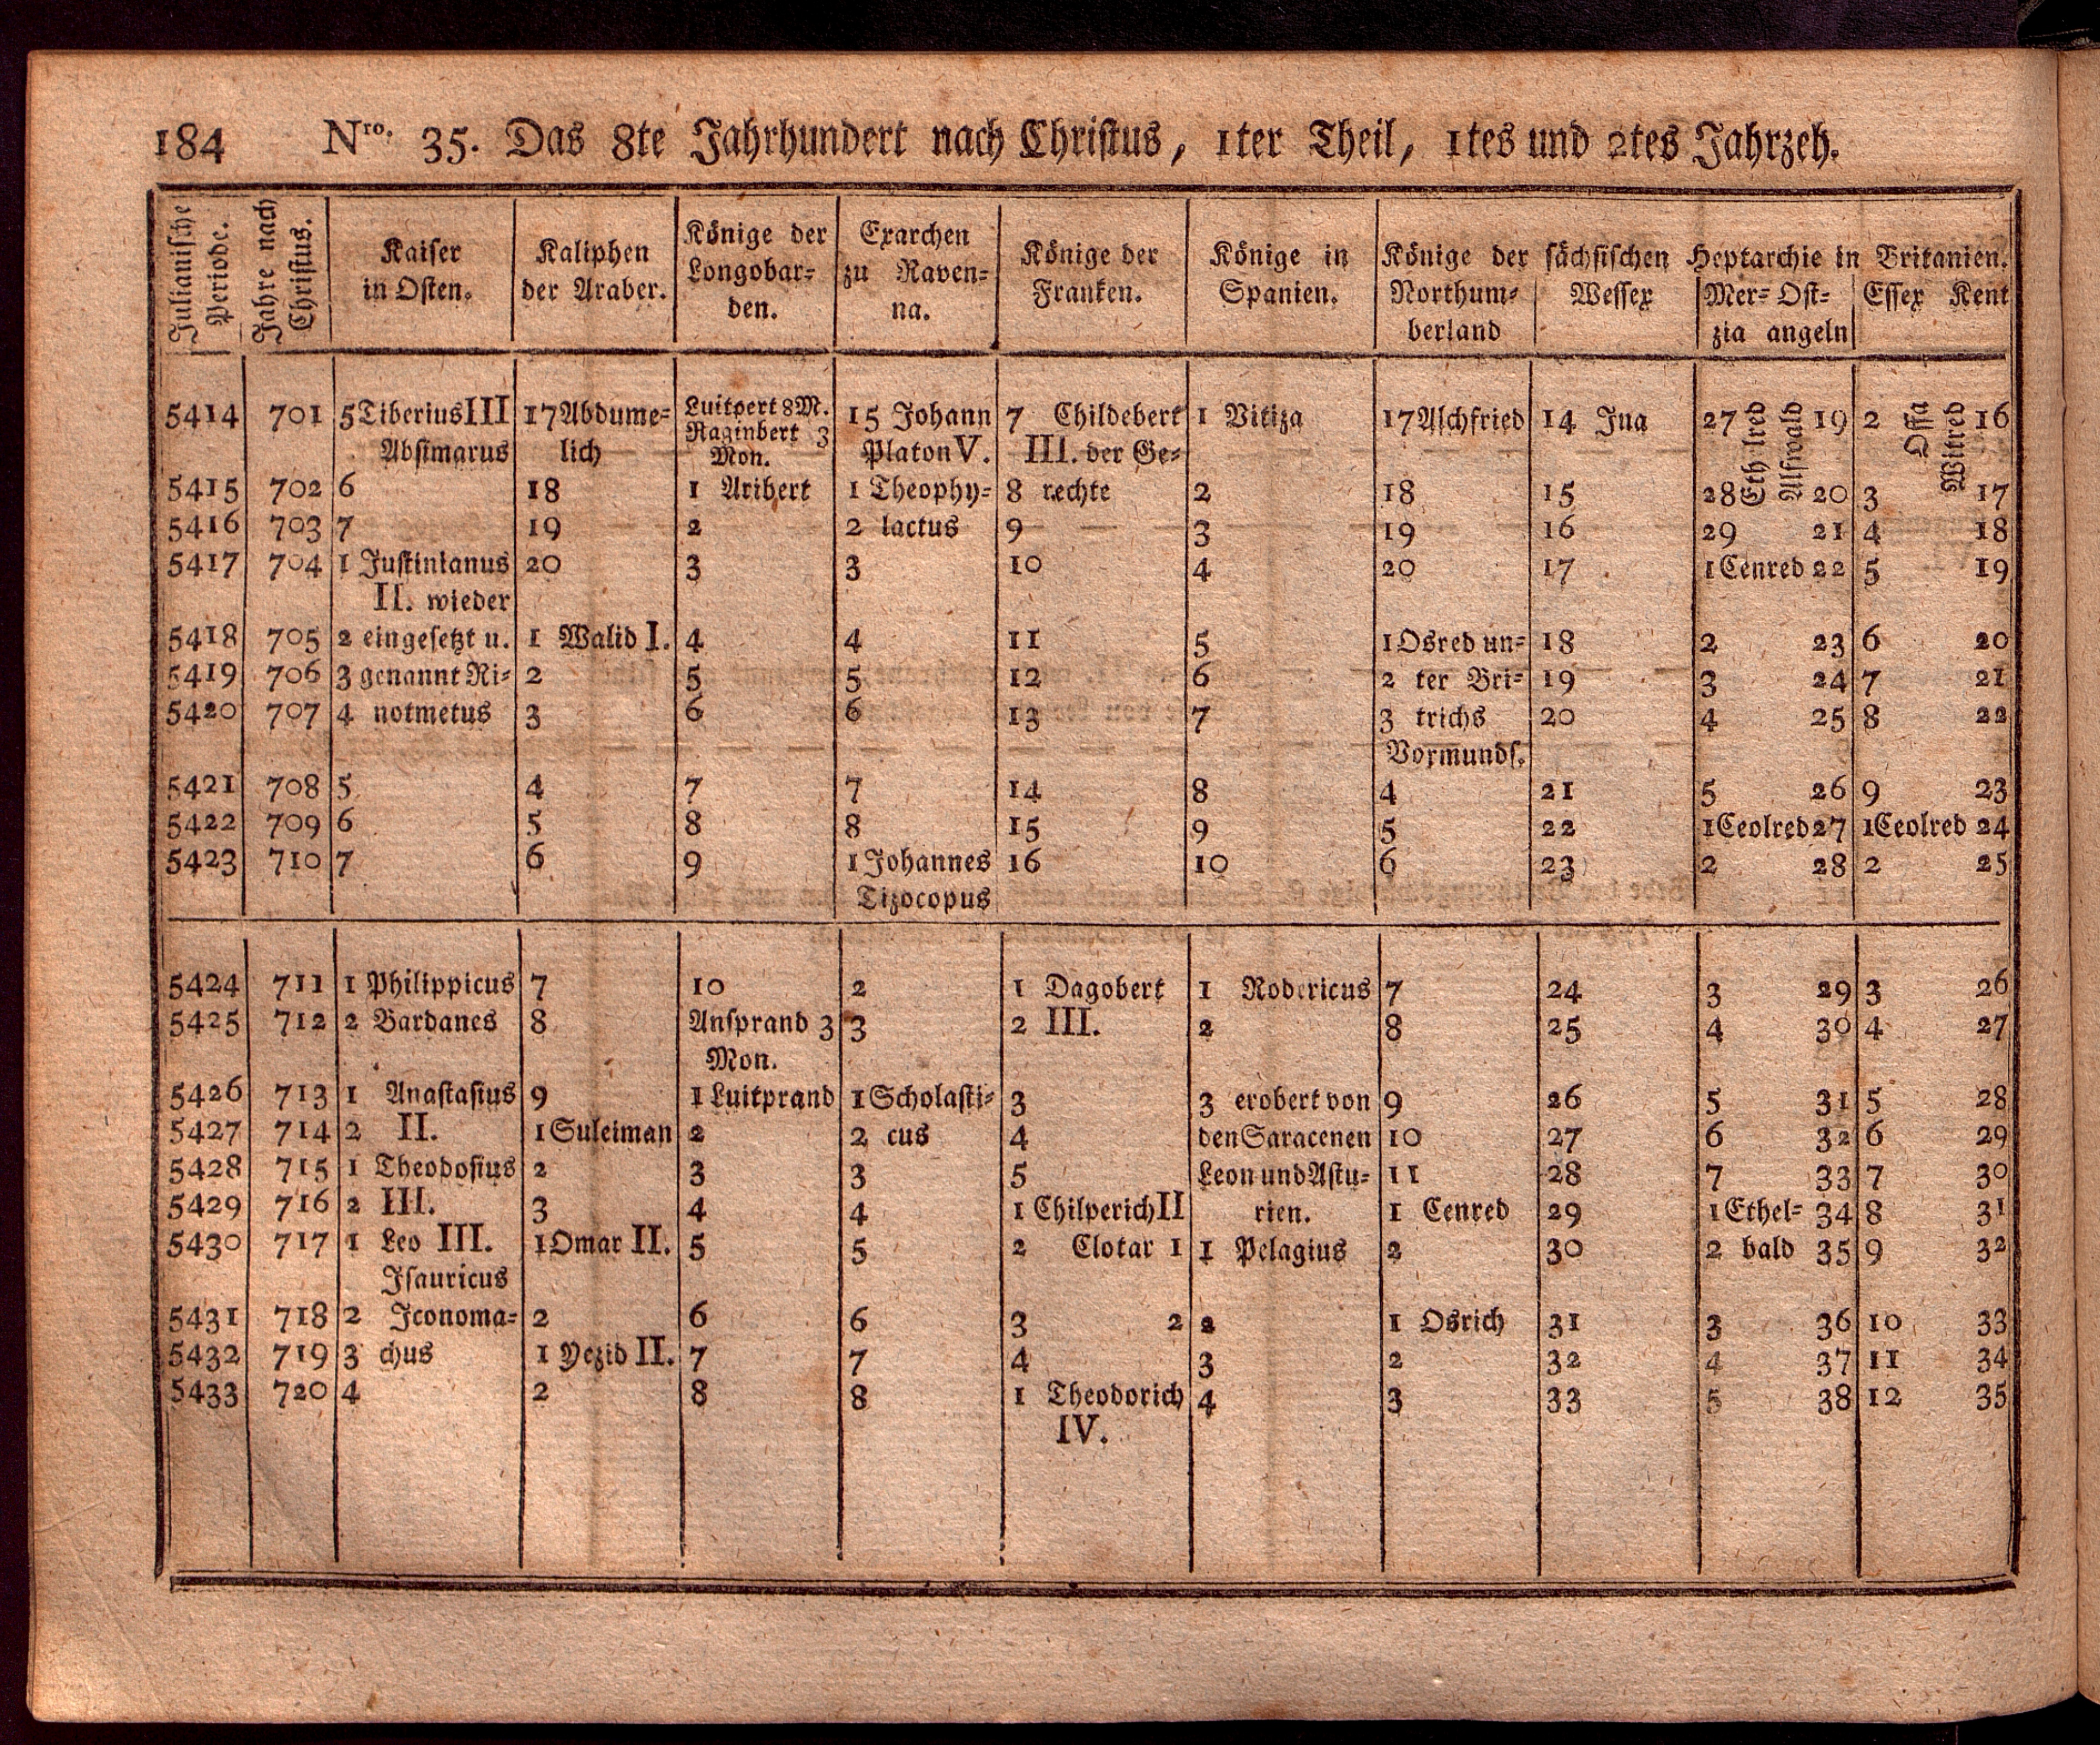 184 Nro. 35. Das 8te Jahrhundert nach Christus, 1ter Theil, 1tes und 2tes Jahrzeh.
Julianische Periode.
Jahre nach Christus.
Kaiser in Osten.
Kaliphen der Araber.
Könige der Longobar-den.
Exarchen zu Raven-na.
Könige der Franken.
Könige in Spanien.
Könige der sächsischen Heptarchie in Britanien.
Northum-berland
Wessex
Mer-zia
Ost-angeln
Essex
Kent
5414 701 5 Tiberius III 17 Abdume- Luitpert 8 M. 15 Johann 7 Childebert 1 Vitiza 17 Alchfried 14 Ina 27 Ethelred Alfwald 19 2 Offa Witred 16
Raginbert 3
Absimarus lich Mon. Platon V. III. der Ge-
5415 702 6 18 1 Aribert 1 Theophy- 8 rechte 2 18 15 28 20 3 17
5416 703 7 19 2 2 lactus 9 3 19 16 29 21 4 18
5417 704 1 Justinianus 20 3 3 10 4 20 17 1 Cenred 22 5 19
II. wieder
5418 705 2 eingesetzt u. 1 Walid I. 4 4 11 5 1 Osred un- 18 2 23 6 20
5419 706 3 genannt Ri- 2 5 5 12 6 2 ter Bri- 19 3 24 7 21
5420 707 4 notmetus 3 6 6 13 7 3 trichs 20 4 25 8 22
Vormunds.
5421 708 5 4 7 7 14 8 4 21 5 26 9 23
5422 709 6 5 8 8 15 9 5 22 1 Ceolred 27 1 Ceolred 24
5423 710 7 6 9 1 Johannes 16 10 6 23 2 28 2 25
Tizocopus
5424 711 1 Philippicus 7 10 2 1 Dagobert 1 Rodericus 7 24 3 29 3 26
5425 712 2 Bardanes 8 Ansprand 3 3 2 III. 2 8 25 4 30 4 27
Mon.
5426 713 1 Anastasius 9 1 Luitprand 1 Scholasti- 3 3 erobert von 9 26 5 31 5 28
5427 714 2 II. 1 Suleiman 2 2 cus 4 den Saracenen 10 27 6 32 6 29
5428 715 1 Theodosius 2 3 3 5 Leon und Astu- 11 28 7 33 7 30
5429 716 2 III. 3 4 4 1 Chilperich II rien. 1 Cenred 29 1 Ethel- 34 8 31
5430 717 1 Leo III. 1 Omar II. 5 5 2 Clotar 1 1 Pelagius 2 30 2 bald 35 9 32
Isauricus
5431 718 2 Iconoma- 2 6 6 3 2 2 1 Osrich 31 3 36 10 33
5432 719 3 chus 1 Yezid II. 7 7 4 3 2 32 4 37 11 34
5433 720 4 2 8 8 1 Theodorich 4 3 33 5 38 12 35
IV.